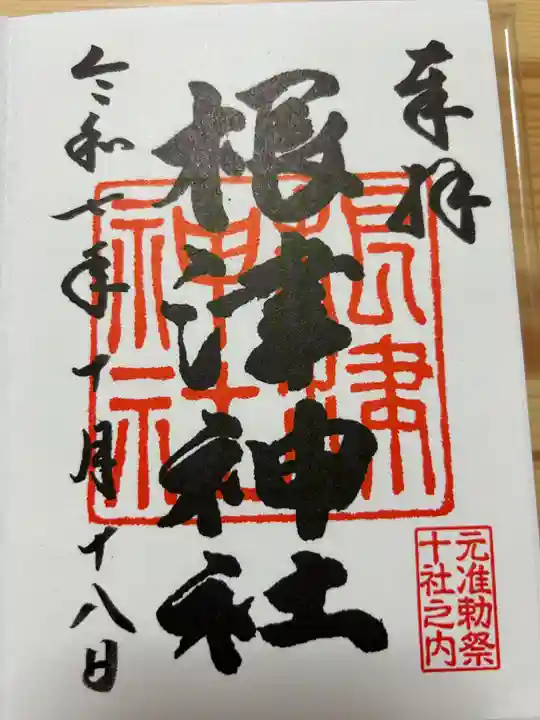 奉拝
根津神社
根津神社
元准勅祭
十社之内
令和七年十月十八日